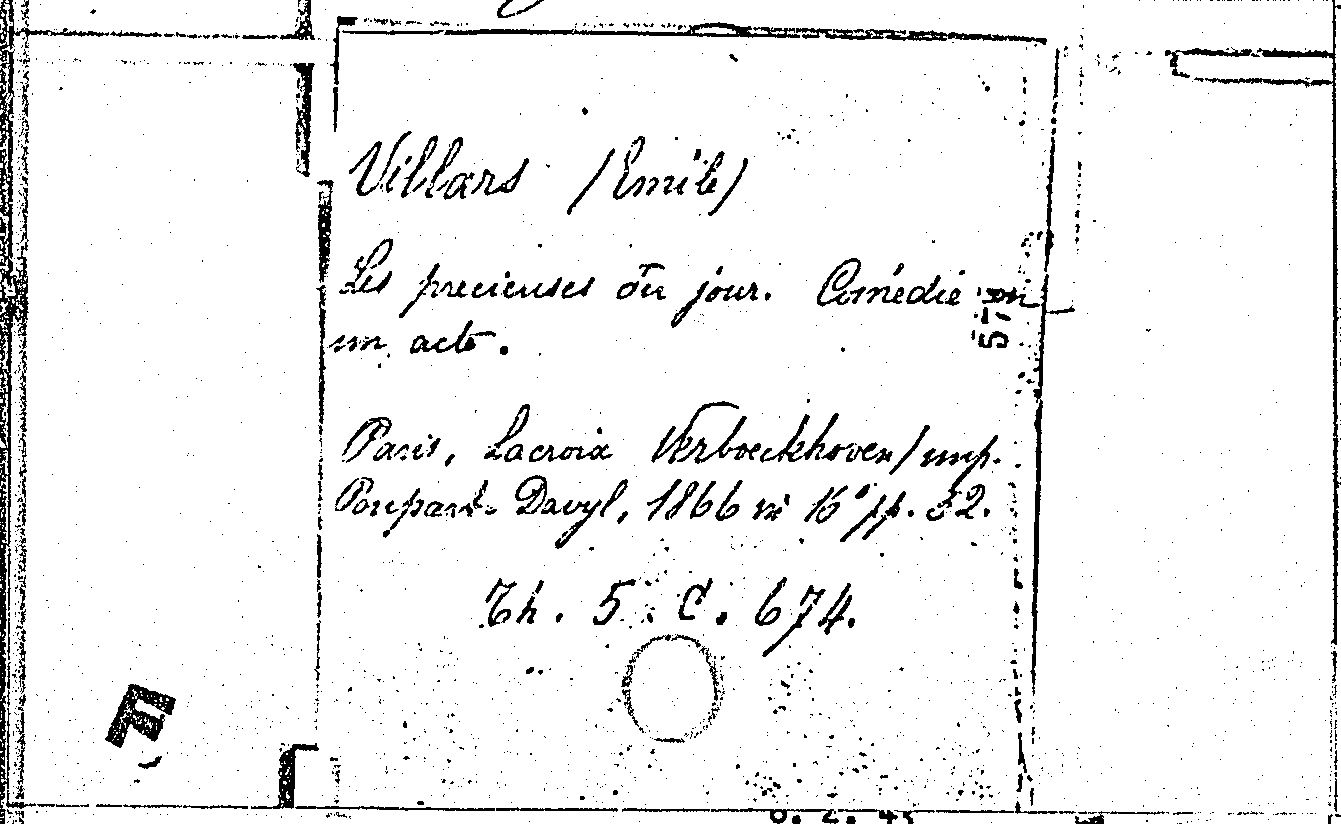 Villars (Emile)
Les precieuses du jour. Comédie en
un acte.
Paris, Lacroix Verboeckhoven (imp.
Poupart-Davyl, 1866 in 16° pp. 32.
Th. 5. C. 674.
F